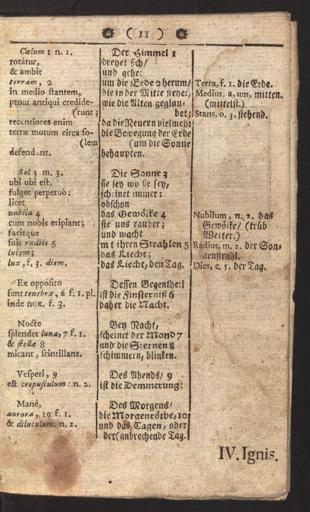 ( 11 )
Cælum 1 n. 2.
rotátur,
& ambit
terram, 2
in medio stantem,
ptout antiqui credide-
(runt;
recentiores enim
terræ motum circa so-
(lem
defendunt.
Sol 3 m. 3.
ubi ubi est,
fulget perpetuò:
licet
nubila 4
eum nobis eripiant;
facitque
suis radiis 5
lucem;
lux, f. 3. diem.
Ex opposito
sunt tenebræ, 6 f. 1. pl.
inde nox. f. 3.
Nocte
splendet luna, 7 f. 1.
& stella 8
micant, scintillant.
Vesperi, 9
est crepusculum: n. 2.
Manè,
aurora, 10 f. 1.
& diluculum. n. 2.
Der Himmel 1
drehet sich/
und gehet
um die Erde 2 herum/
die in der Mitte stehet,
wie die Alten geglau-
bet;
da die Neuern vielmehr
die Bewegung der Erde
(um die Sonne
behaupten.
Die Sonne 3
sie sey wo sie sey,
scheinet immer:
obschon
das Gewölke 4
sie uns raubet;
und macht
mit ihren Strahlen 5
das Liecht;
das Liecht, den Tag.
Dessen Gegentheil
ist die Finsternis 6
daher die Nacht.
Bey Nacht,
scheinet der Mond 7
und die Sternen 8
schimmern, blinken.
Des Abends/ 9
ist die Demmerung:
Des Morgens/
die Morgenröthe, 10
und das Tagen, oder
der anbrechende Tag.
Terra, f. 1. die Erde.
Medius, a, um, mitten.
(mittelst.)
Stans, o. 3. stehend.
Nubilum, n. 2. das
Gewölke/ (trüb
Wetter.)
Radius, m. 2. der Son-
nenstrahl.
Dies, c. 5. der Tag.
IV. Ignis.